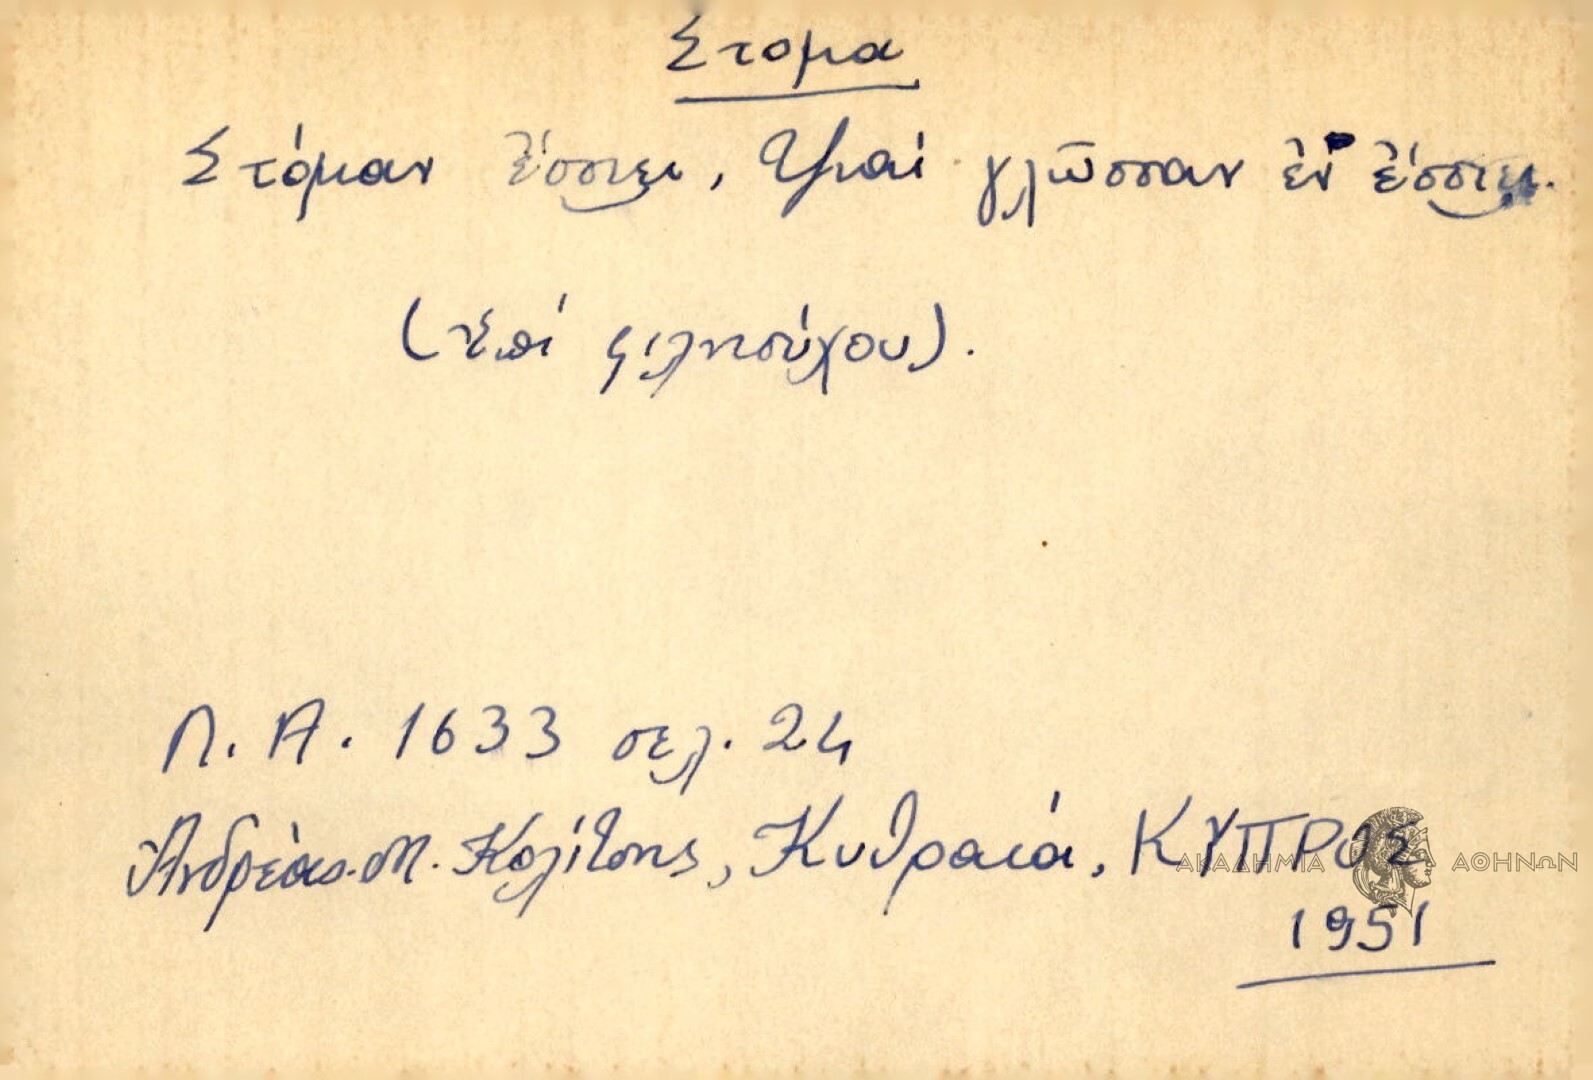 Στομα
Στόμαν ἔσσιει, τζιαί γλῶσσαν ἐν ἔσσιει.
(Ἐπί φιλησύχου).
Λ. Α. 1633 σελ. 24
Ἀνδρέας Μ. Κολίτσης, Κυθραιά, ΚΥΠΡΟΣ
ΑΚΑΔΗΜΙΑ ΑΘΗΝΩΝ
1951